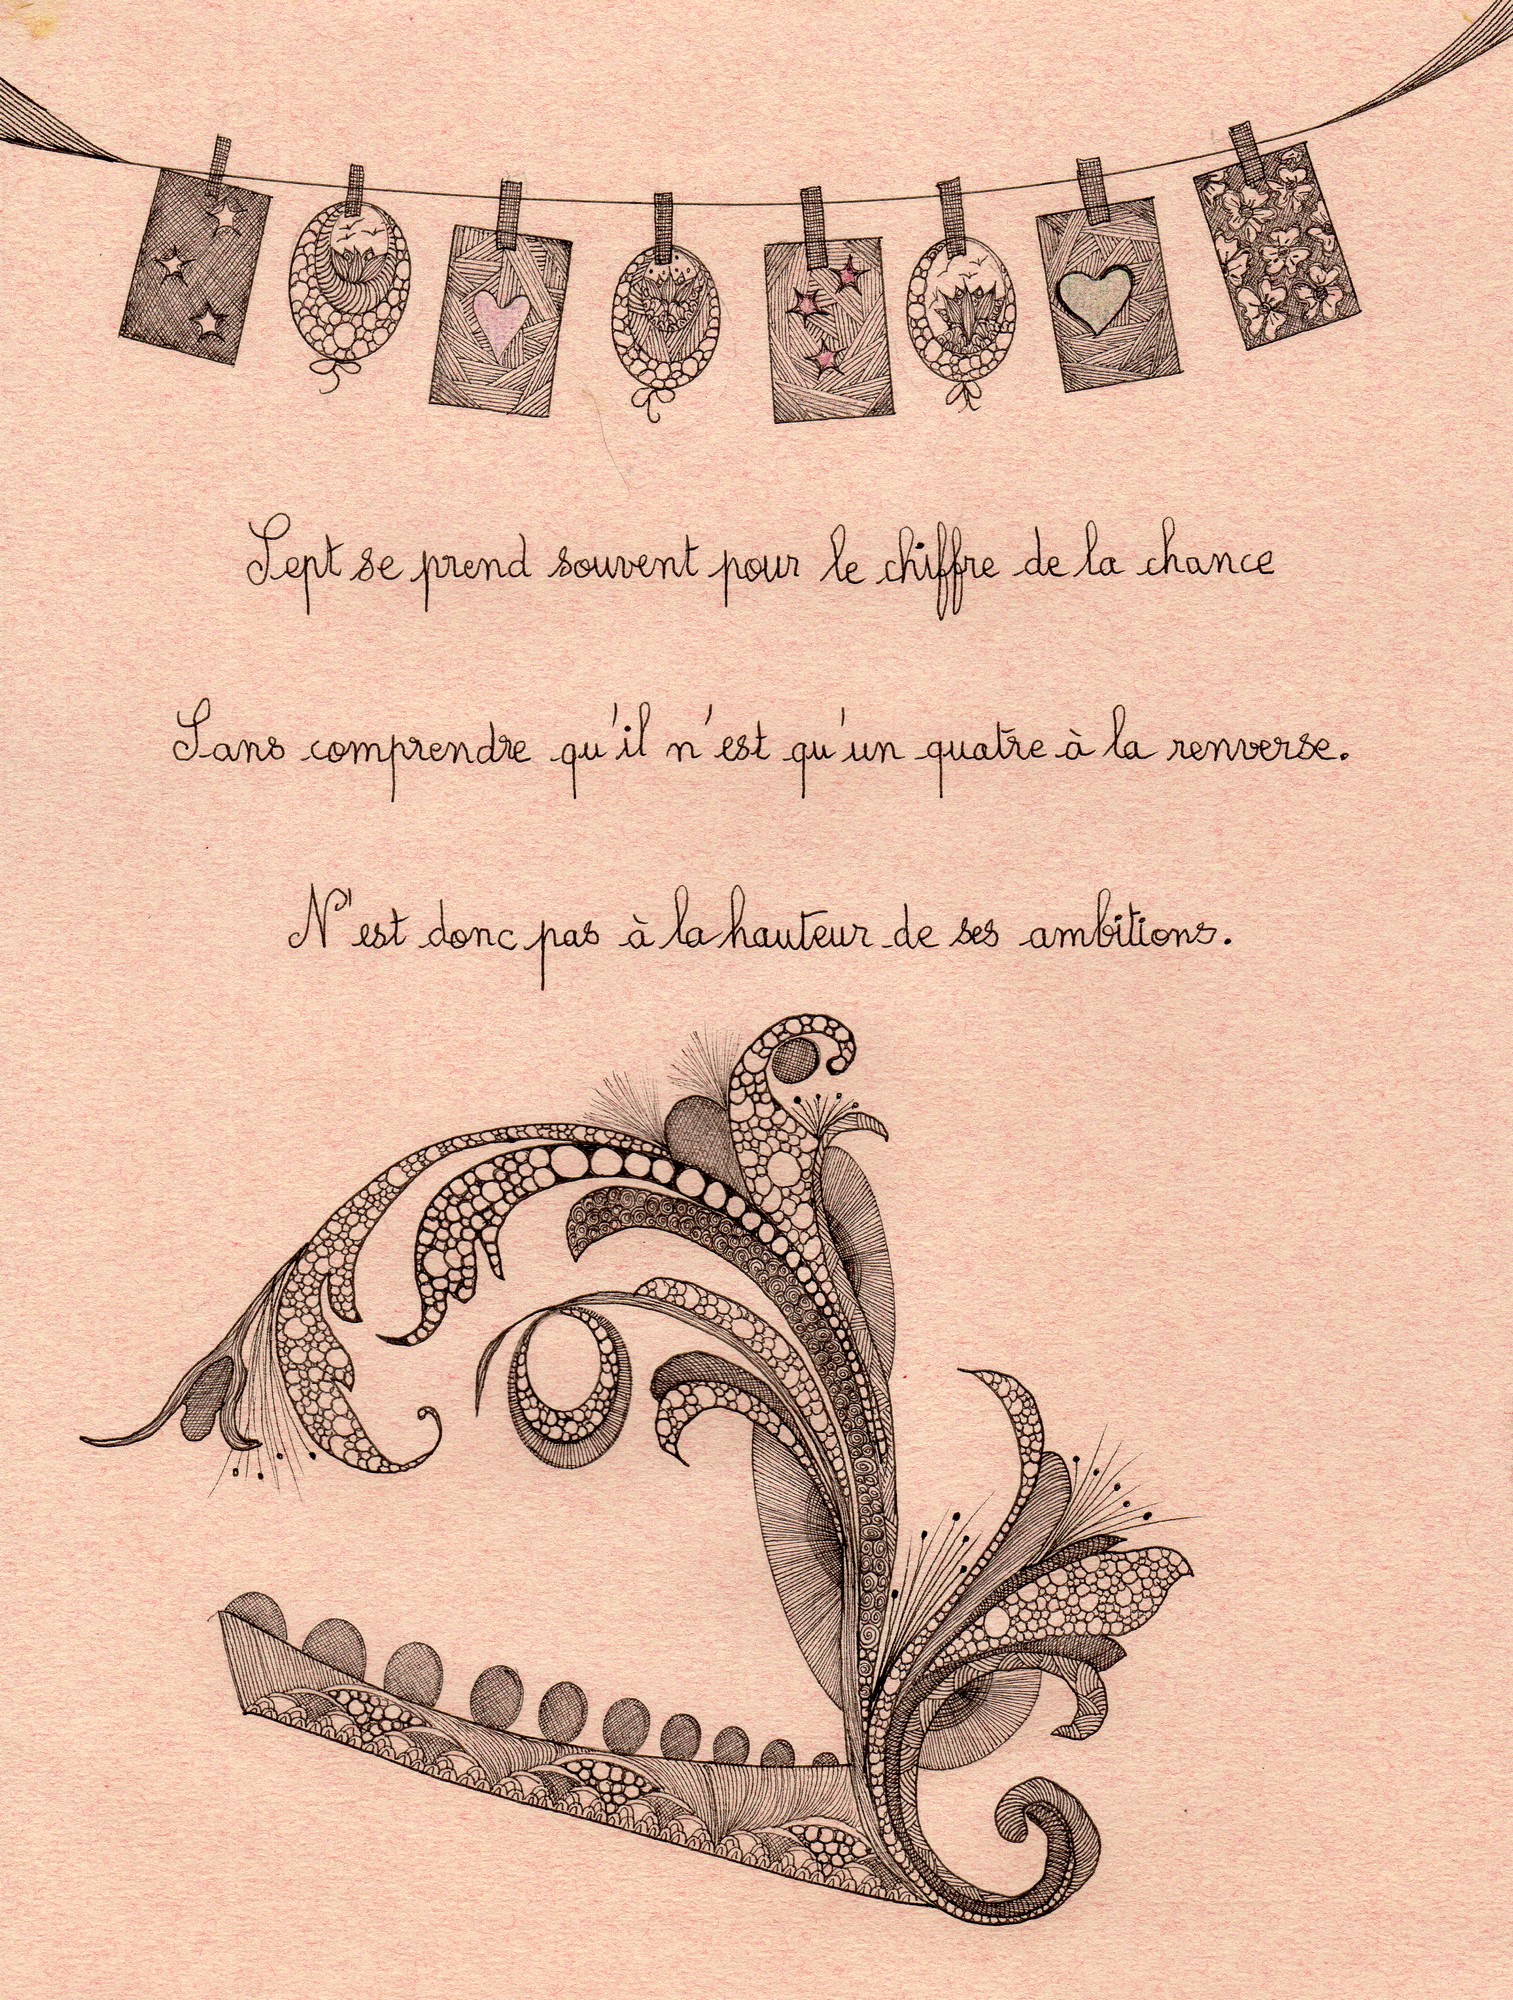 Sept se prend souvent pour le chiffre de la chance
Sans comprendre qu'il n'est qu'un quatre à la renverse.
N'est donc pas à la hauteur de ses ambitions.